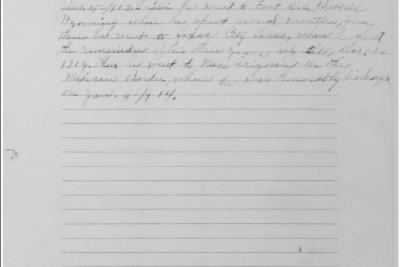 he went to Fort
Wyoming where he spent several months, from
there he went to Texas City Texas, where he spent
the remainder of his three years, till Dec,
1914. then he went to Naco Arizona on the
Mexican Border, where he was honorably discharged
on Jan. 4-1914.